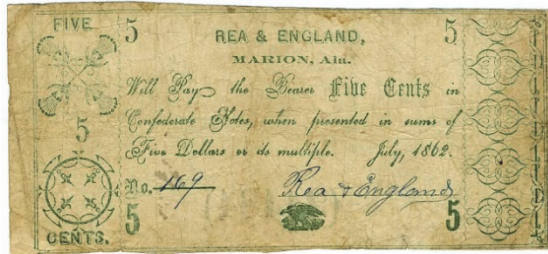 FIVE 5 REA & ENGLAND, 5
MARION, Ala.
Will Pay the Bearer Five Cents in
Confederate Notes, when presented in sums of
5
Five Dollars or its multiple. July, 1862.
No. 169 Rea & England
CENTS. 5 5